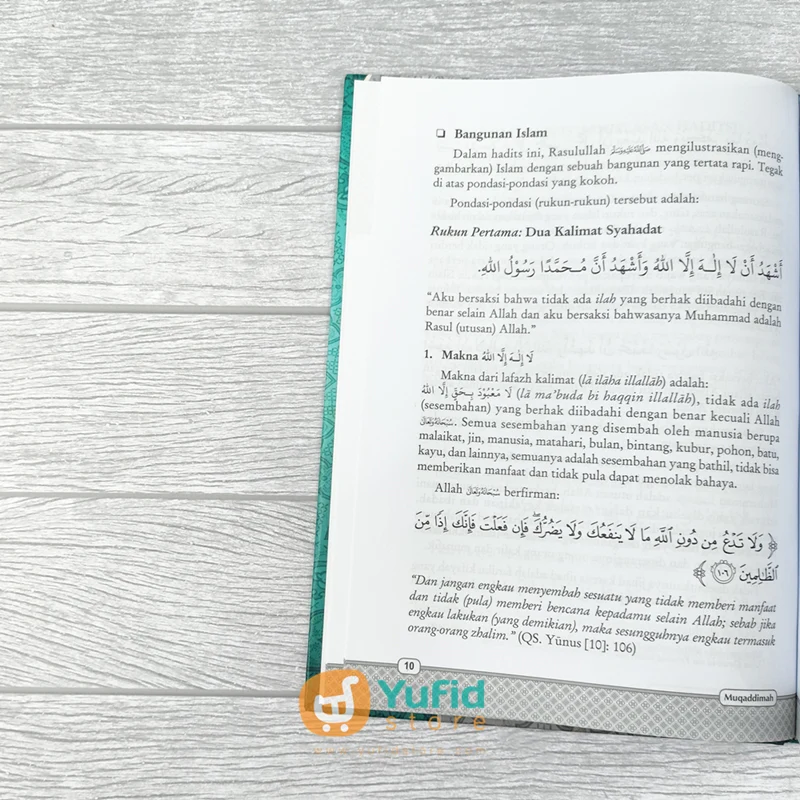 ❑ Bangunan Islam
Dalam hadits ini, Rasulullah ﷺ mengilustrasikan (meng-
gambarkan) Islam dengan sebuah bangunan yang tertata rapi. Tegak
di atas pondasi-pondasi yang kokoh.
Pondasi-pondasi (rukun-rukun) tersebut adalah:
Rukun Pertama: Dua Kalimat Syahadat
أَشْهَدُ أَنْ لَا إِلٰـهَ إِلَّا اللهُ وَأَشْهَدُ أَنَّ مُحَمَّدًا رَسُوْلُ اللهِ.
“Aku bersaksi bahwa tidak ada ilah yang berhak diibadahi dengan
benar selain Allah dan aku bersaksi bahwasanya Muhammad adalah
Rasul (utusan) Allah.”
1. Makna لَا إِلٰـهَ إِلَّا اللهُ
Makna dari lafazh kalimat (lā ilāha illallāh) adalah:
لَا مَعْبُوْدَ بِحَقٍّ إِلَّا اللهُ (lā ma’buda bi haqqin illallāh), tidak ada ilah
(sesembahan) yang berhak diibadahi dengan benar kecuali Allah
سُبْحَانَهُ وَتَعَالَى. Semua sesembahan yang disembah oleh manusia berupa
malaikat, jin, manusia, matahari, bulan, bintang, kubur, pohon, batu,
kayu, dan lainnya, semuanya adalah sesembahan yang bathil, tidak bisa
memberikan manfaat dan tidak pula dapat menolak bahaya.
Allah سُبْحَانَهُ وَتَعَالَى berfirman:
﴿ وَلَا تَدْعُ مِن دُونِ ٱللَّهِ مَا لَا يَنفَعُكَ وَلَا يَضُرُّكَ ۖ فَإِن فَعَلْتَ فَإِنَّكَ إِذًا مِّنَ
ٱلظَّـٰلِمِينَ ١٠٦ ﴾
“Dan jangan engkau menyembah sesuatu yang tidak memberi manfaat
dan tidak (pula) memberi bencana kepadamu selain Allah; sebab jika
engkau lakukan (yang demikian), maka sesungguhnya engkau termasuk
orang-orang zhalim.” (QS. Yūnus [10]: 106)
10
Muqaddimah
Yufid
store